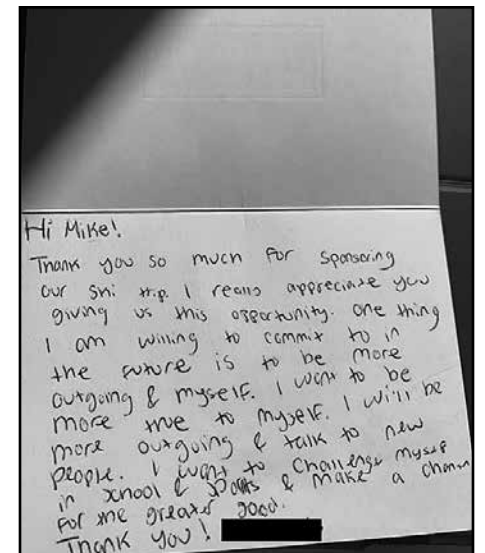 Hi Mike!
Thank you so much for sponsoring
our ski trip. I really appreciate you
giving us this opportunity. One thing
I am willing to commit to in
the future is to be more
outgoing & myself. I want to be
more true to myself. I will be
more outgoing & talk to new
people. I want to challenge myself
in school & sports & make a change
for the greater good.
Thank you!